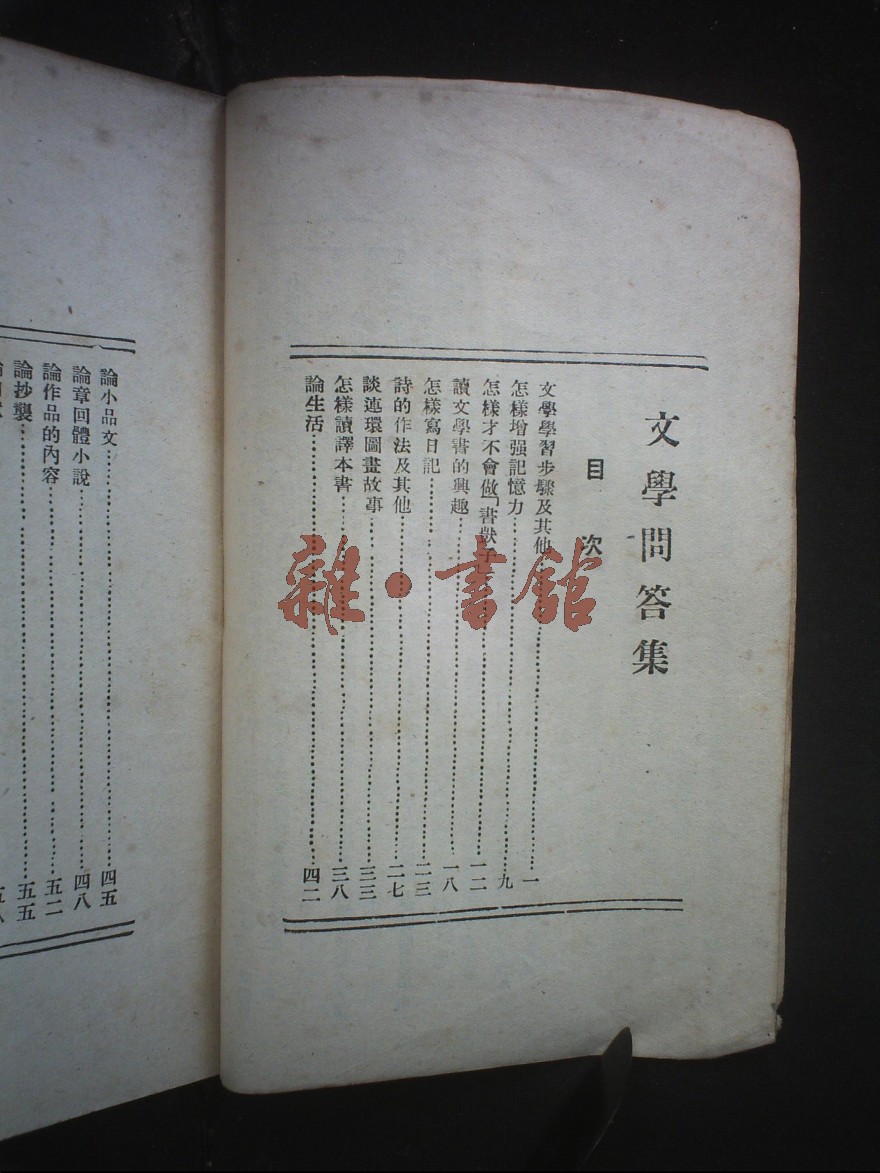 文學問答集
目次
文學學習步驟及其他……一
怎樣增强記憶力……九
怎樣才不會做「書獃子」……一二
讀文學書的興趣……一八
怎樣寫日記……二三
詩的作法及其他……二七
談連環圖畫故事……三三
怎樣讀譯本書……三八
論生活……四二
論小品文……四五
論章回體小說……四八
論作品的內容……五二
論抄襲……五五
雜·書館